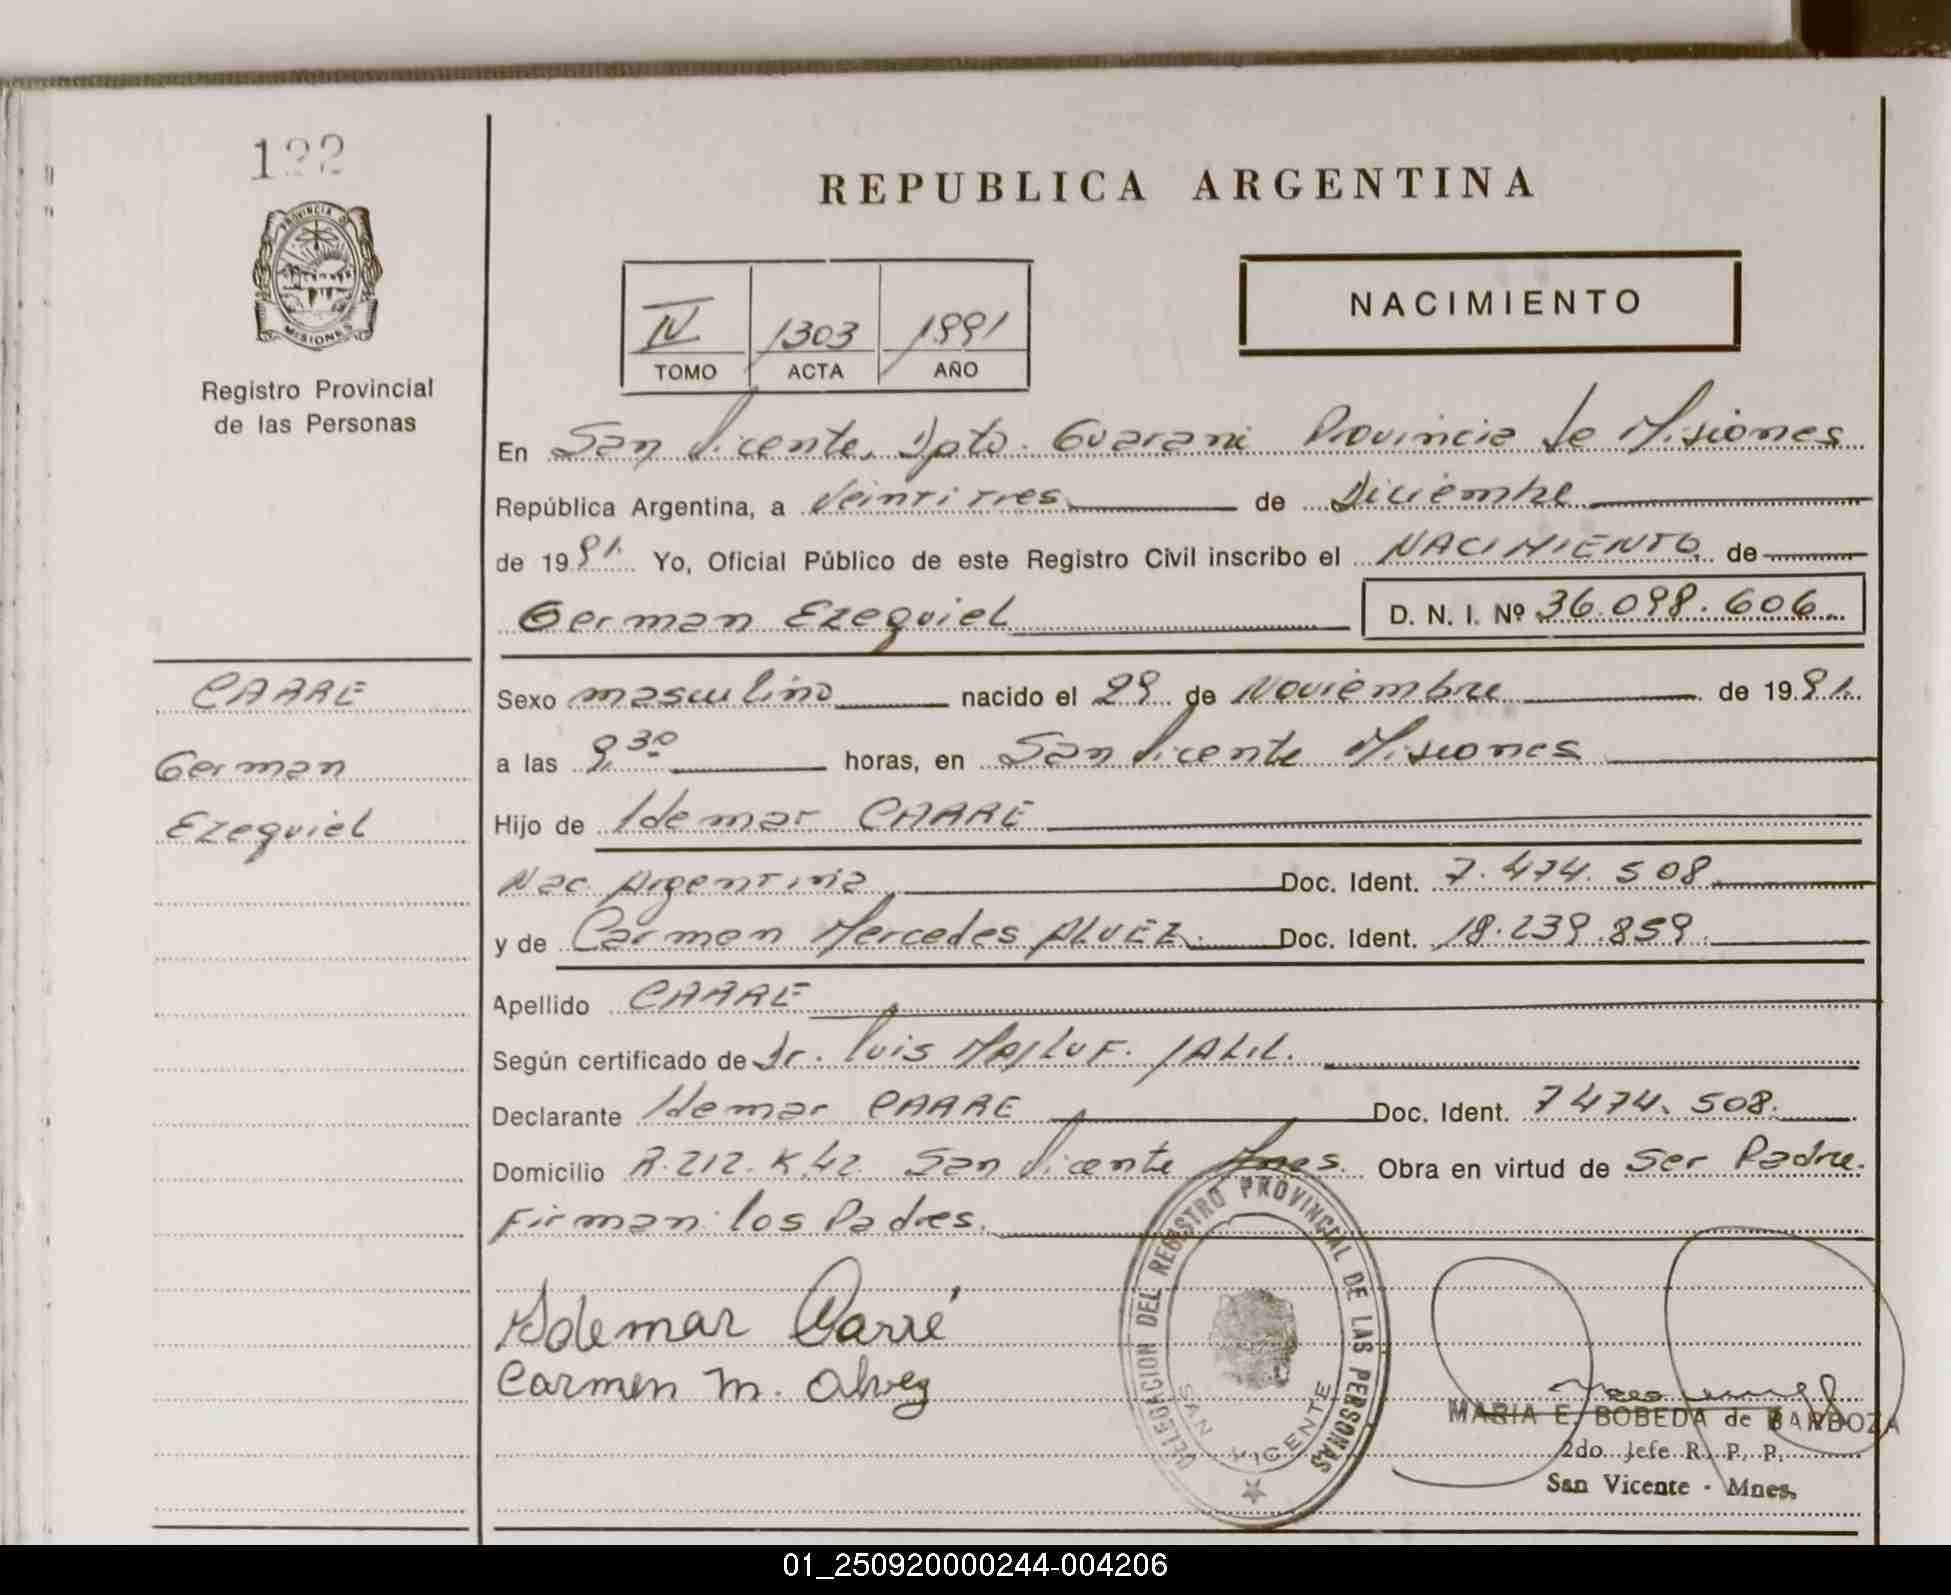 122
REPUBLICA ARGENTINA
PROVINCIA DE
MISIONES
Registro Provincial
de las Personas
IV 1303 1991
TOMO ACTA AÑO
NACIMIENTO
En San Vicente, Dpto. Guarani Provincia de Misiones
República Argentina, a Veintitres de Diciembre
de 1991. Yo, Oficial Público de este Registro Civil inscribo el NACIMIENTO de
German Ezequiel D. N. I. Nº 36.098.606
CARRE
German
Ezequiel
Sexo masculino nacido el 29 de Noviembre de 1991.
a las 9,30 horas, en San Vicente Misiones
Hijo de Idemar CARRE
Nac. Argentina Doc. Ident. 7.474.508
y de Carmen Mercedes ALVEZ. Doc. Ident. 18.239.859.
Apellido CARRE
Según certificado de Dr. Luis MAJLUF. JALIL.
Declarante Idemar CARRE Doc. Ident. 7474.508.
Domicilio R.212.K.42. San Vicente Mnes. Obra en virtud de ser Padre.
Firman los Padres.
Idemar Carré
Carmen M. Alvez
DELEGACION DEL REGISTRO PROVINCIAL DE LAS PERSONAS
SAN VICENTE
MARIA E. BOBEDA de BARBOZA
2do. Jefe R. P. P.
San Vicente - Mnes.
01_250920000244-004206